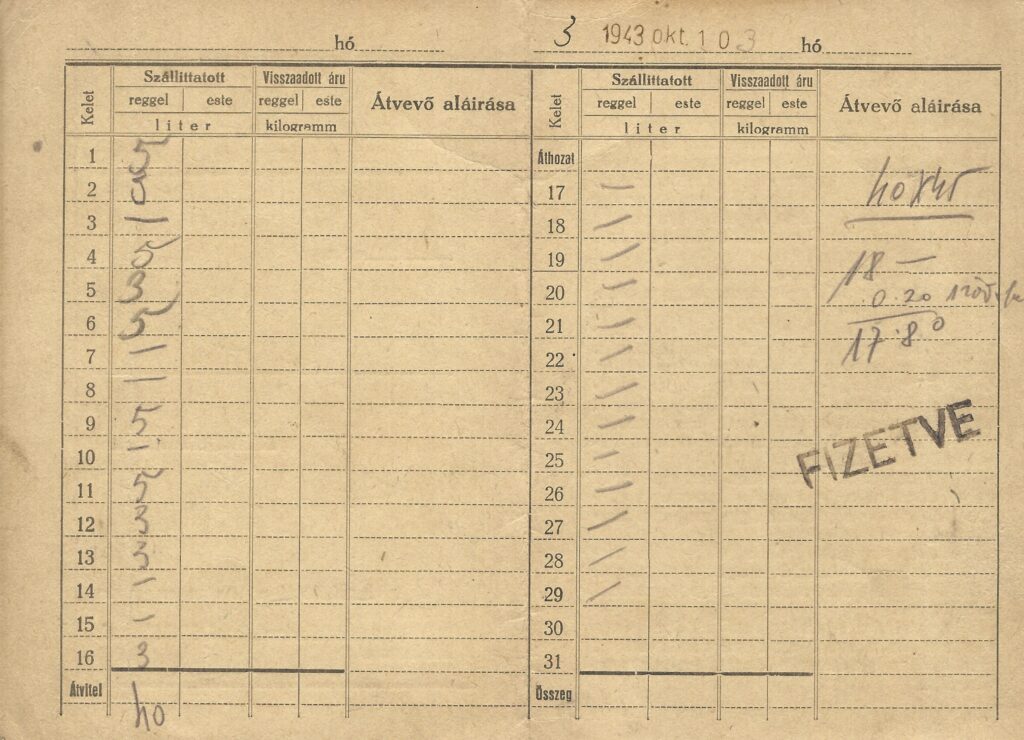 hó
Kelet
Szállittatott
Visszaadott áru
Átvevő aláirása
reggel este reggel este
liter
kilogramm
1 5
2 5
3 —
4 5
5 3
6 5
7 —
8 —
9 5
10 —
11 5
12 3
13 3
14 —
15 —
16 3
Átvitel
40
3 1943 okt. 1 0 3 hó
Kelet
Szállittatott
Visszaadott áru
Átvevő aláirása
reggel este reggel este
liter
kilogramm
Áthozat
17 —
18 —
19 —
20 —
21 —
22 —
23 —
24 —
25 —
26 —
27 —
28 —
29 —
30
31
Összeg
40 x 45
18 —
0.20
17.80
FIZETVE